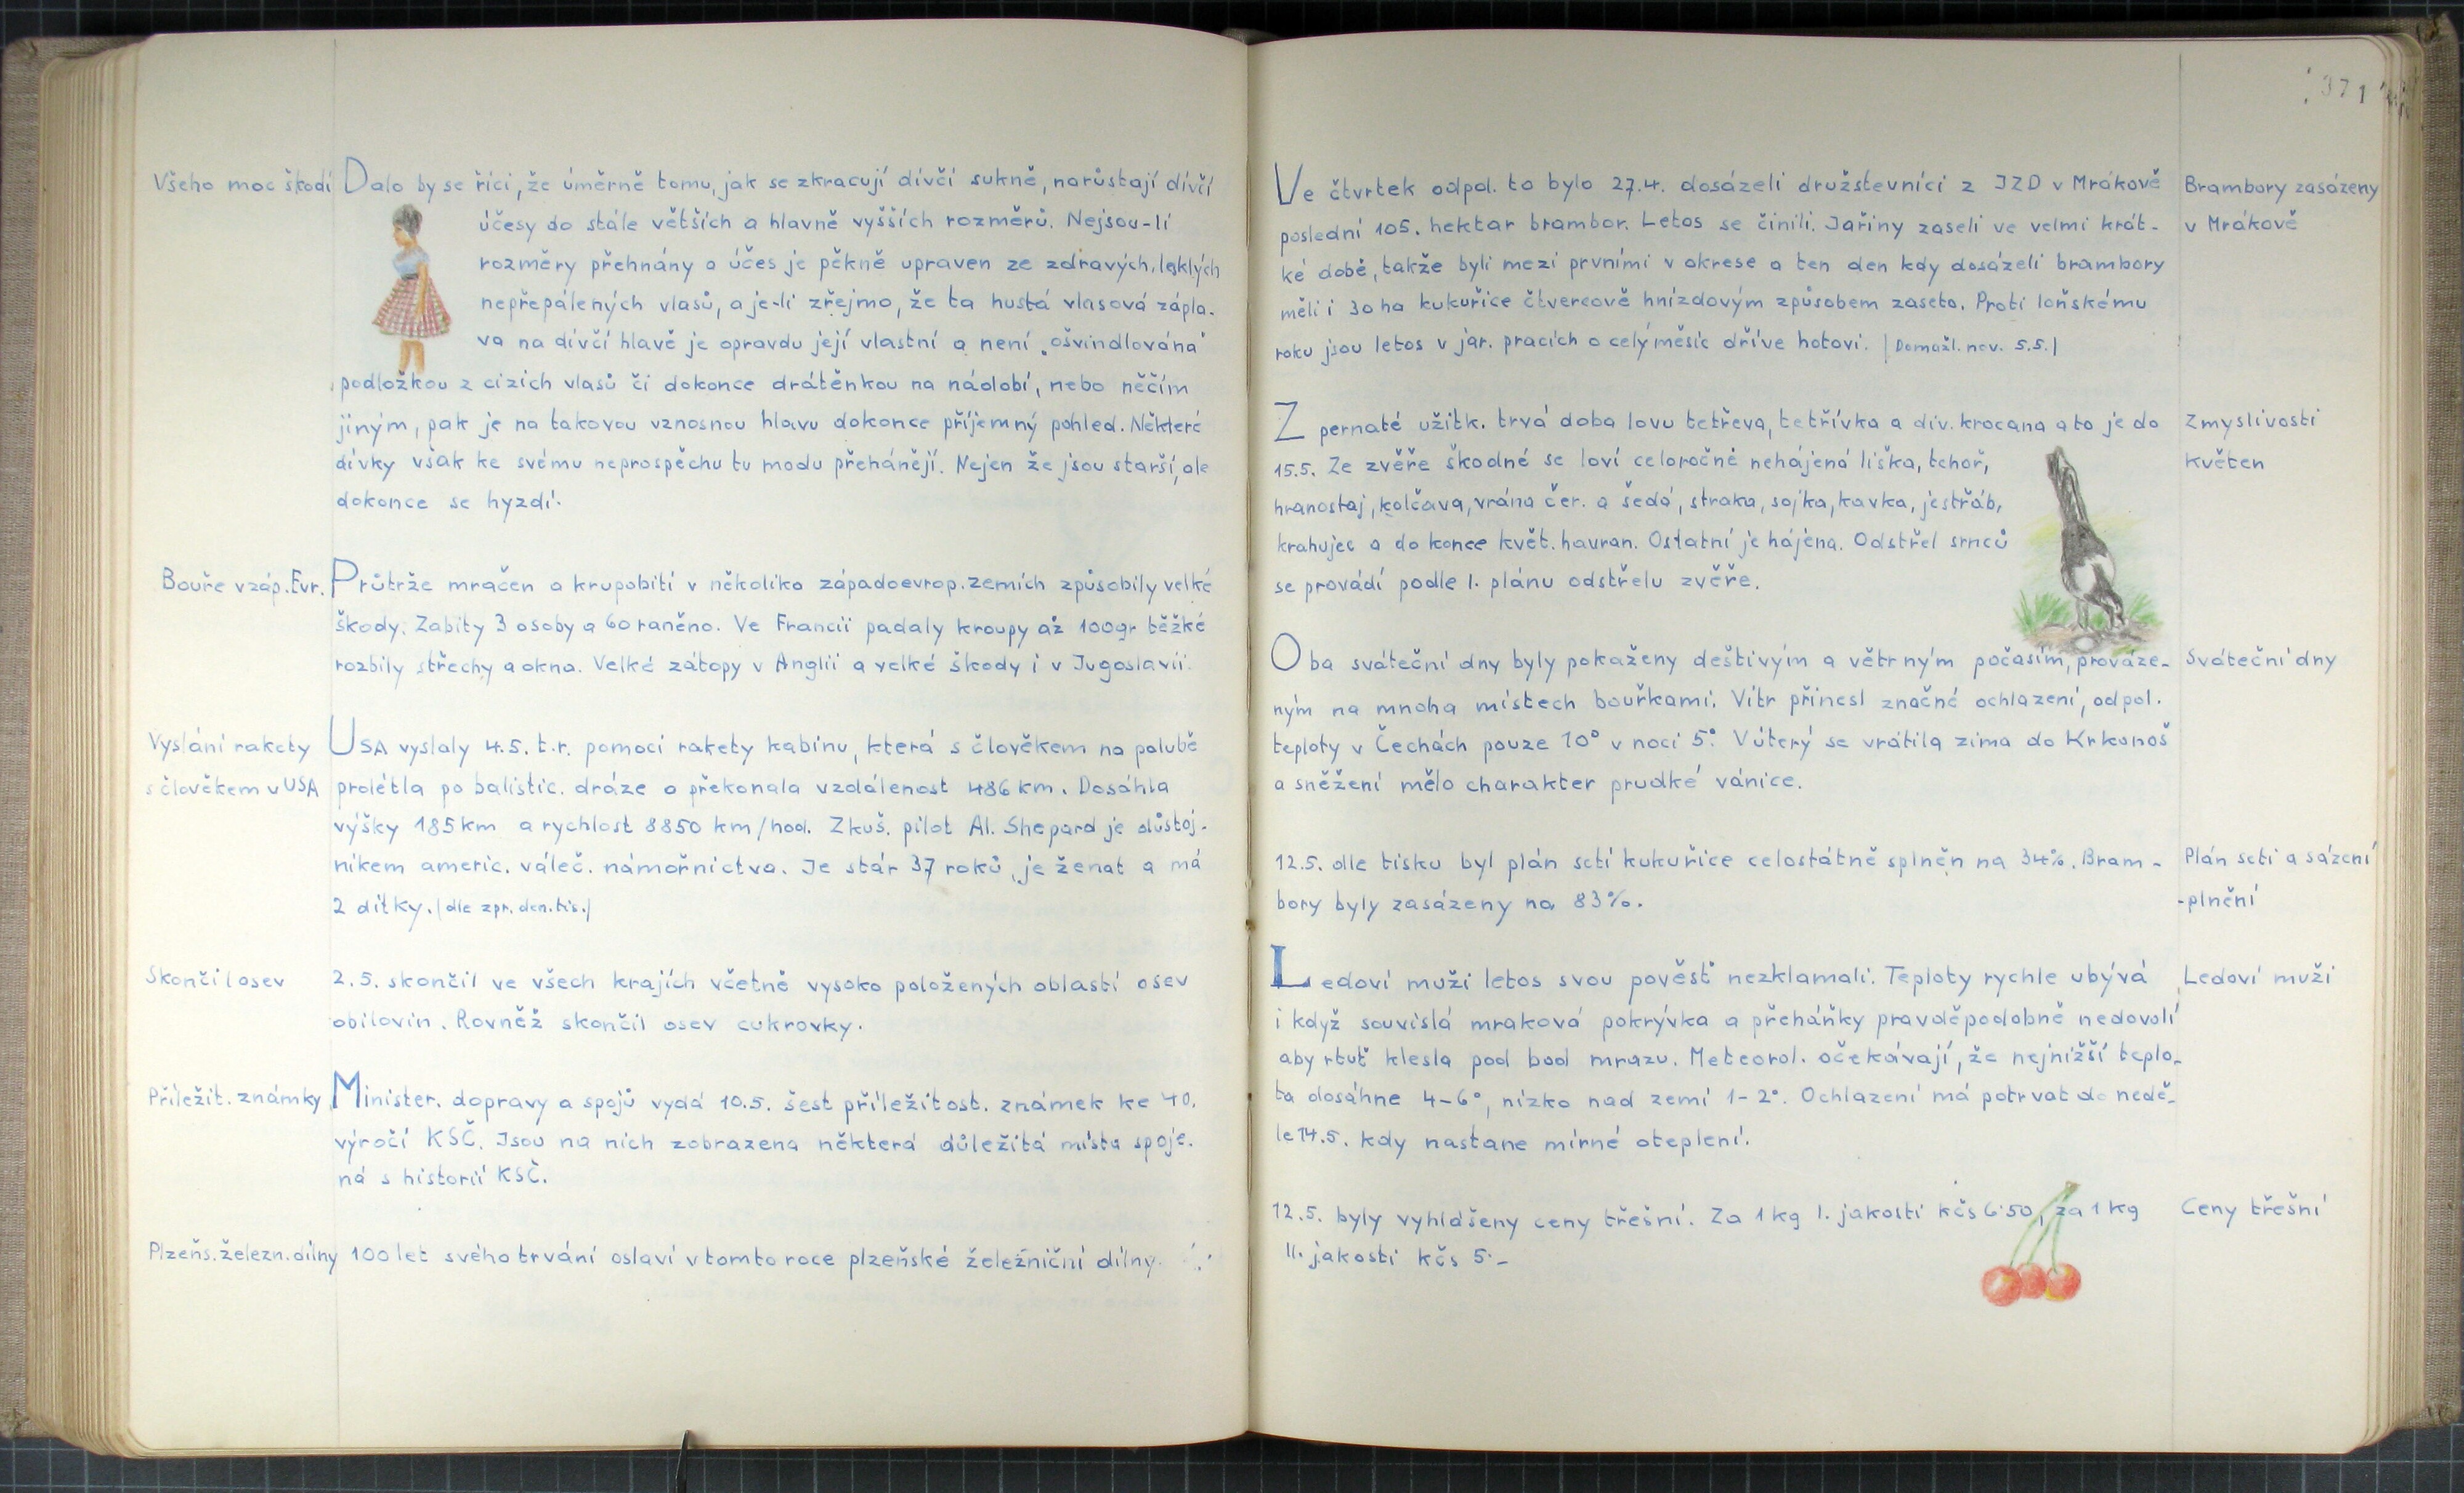 Všeho moc škodí
Dalo by se říci, že úměrně tomu, jak se zkracují dívčí sukně, narůstají dívčí
účesy do stále větších a hlavně vyšších rozměrů. Nejsou-li
rozměry přehnány a účes je pěkně upraven ze zdravých, lesklých
nepřepálených vlasů, a je-li zřejmo, že ta hustá vlasová zápla-
va na dívčí hlavě je opravdu její vlastní a není „ošvindlována"
podložkou z cizích vlasů či dokonce drátěnkou na nádobí, nebo něčím
jiným, pak je na takovou vznosnou hlavu dokonce příjemný pohled. Některé
dívky však ke svému neprospěchu tu modu přehánějí. Nejen že jsou starší, ale
dokonce se hyzdí.
Bouře v záp. Evr.
Průtrže mračen a krupobití v několika západoevrop. zemích způsobily velké
škody. Zabity 3 osoby a 60 raněno. Ve Francii padaly kroupy až 100gr těžké
rozbily střechy a okna. Velké zátopy v Anglii a velké škody i v Jugoslavii.
Vyslání rakety
s člověkem v USA
USA vyslaly 4.5. t.r. pomocí rakety kabinu, která s člověkem na palubě
prolétla po balistic. dráze a překonala vzdálenost 486 km. Dosáhla
výšky 185 km a rychlost 8850 km/hod. Zkuš. pilot Al. Shepard je důstoj-
níkem americ. váleč. námořnictva. Je stár 37 roků, je ženat a má
2 dítky. (dle zpr. den. tis.)
Skončil osev
2.5. skončil ve všech krajích včetně vysoko položených oblastí osev
obilovin. Rovněž skončil osev cukrovky.
Příležit. známky
Minister. dopravy a spojů vydá 10.5. šest příležitost. známek ke 40.
výročí KSČ. Jsou na nich zobrazena některá důležitá místa spoje-
ná s historií KSČ.
Plzeňs. železn. dílny
100 let svého trvání oslaví v tomto roce plzeňské železniční dílny.
371
Ve čtvrtek odpol. to bylo 27.4. dosázeli družstevníci z JZD v Mrákově
poslední 105. hektar brambor. Letos se činili. Jařiny zaseli ve velmi krát-
ké době, takže byli mezi prvními v okrese a ten den kdy dosázeli brambory
měli i 30 ha kukuřice čtvercově hnízdovým způsobem zaseto. Proti loňskému
roku jsou letos v jar. pracích o celý měsíc dříve hotovi. (Domažl. nov. 5.5.)
Brambory zasázeny
v Mrákově
Z pernaté užitk. trvá doba lovu tetřeva, tetřívka a div. krocana a to je do
15.5. Ze zvěře škodné se loví celoročně nehájená liška, tchoř,
hranostaj, kolčava, vrána čer. a šedá, straka, sojka, kavka, jestřáb,
krahujec a do konce květ. havran. Ostatní je hájena. Odstřel srnců
se provádí podle I. plánu odstřelu zvěře.
Z myslivosti
Květen
Oba sváteční dny byly pokaženy deštivým a větrným počasím, prováze-
ným na mnoha místech bouřkami. Vítr přinesl značné ochlazení, odpol.
teploty v Čechách pouze 10° v noci 5°. V úterý se vrátila zima do Krkonoš
a sněžení mělo charakter prudké vánice.
Sváteční dny
12.5. dle tisku byl plán setí kukuřice celostátně splněn na 34%. Bram-
bory byly zasázeny na 83%.
Plán setí a sázení
-plnění
Ledoví muži letos svou pověsť nezklamali. Teploty rychle ubývá
i když souvislá mraková pokrývka a přeháňky pravděpodobně nedovolí
aby rtuť klesla pod bod mrazu. Meteorol. očekávají, že nejnižší teplo-
ta dosáhne 4-6°, nízko nad zemí 1-2°. Ochlazení má potrvat do nedě-
le 14.5. kdy nastane mírné oteplení.
Ledoví muži
12.5. byly vyhlášeny ceny třešní. Za 1 kg I. jakosti kčs 6·50, za 1 kg
II. jakosti kčs 5·-
Ceny třešní